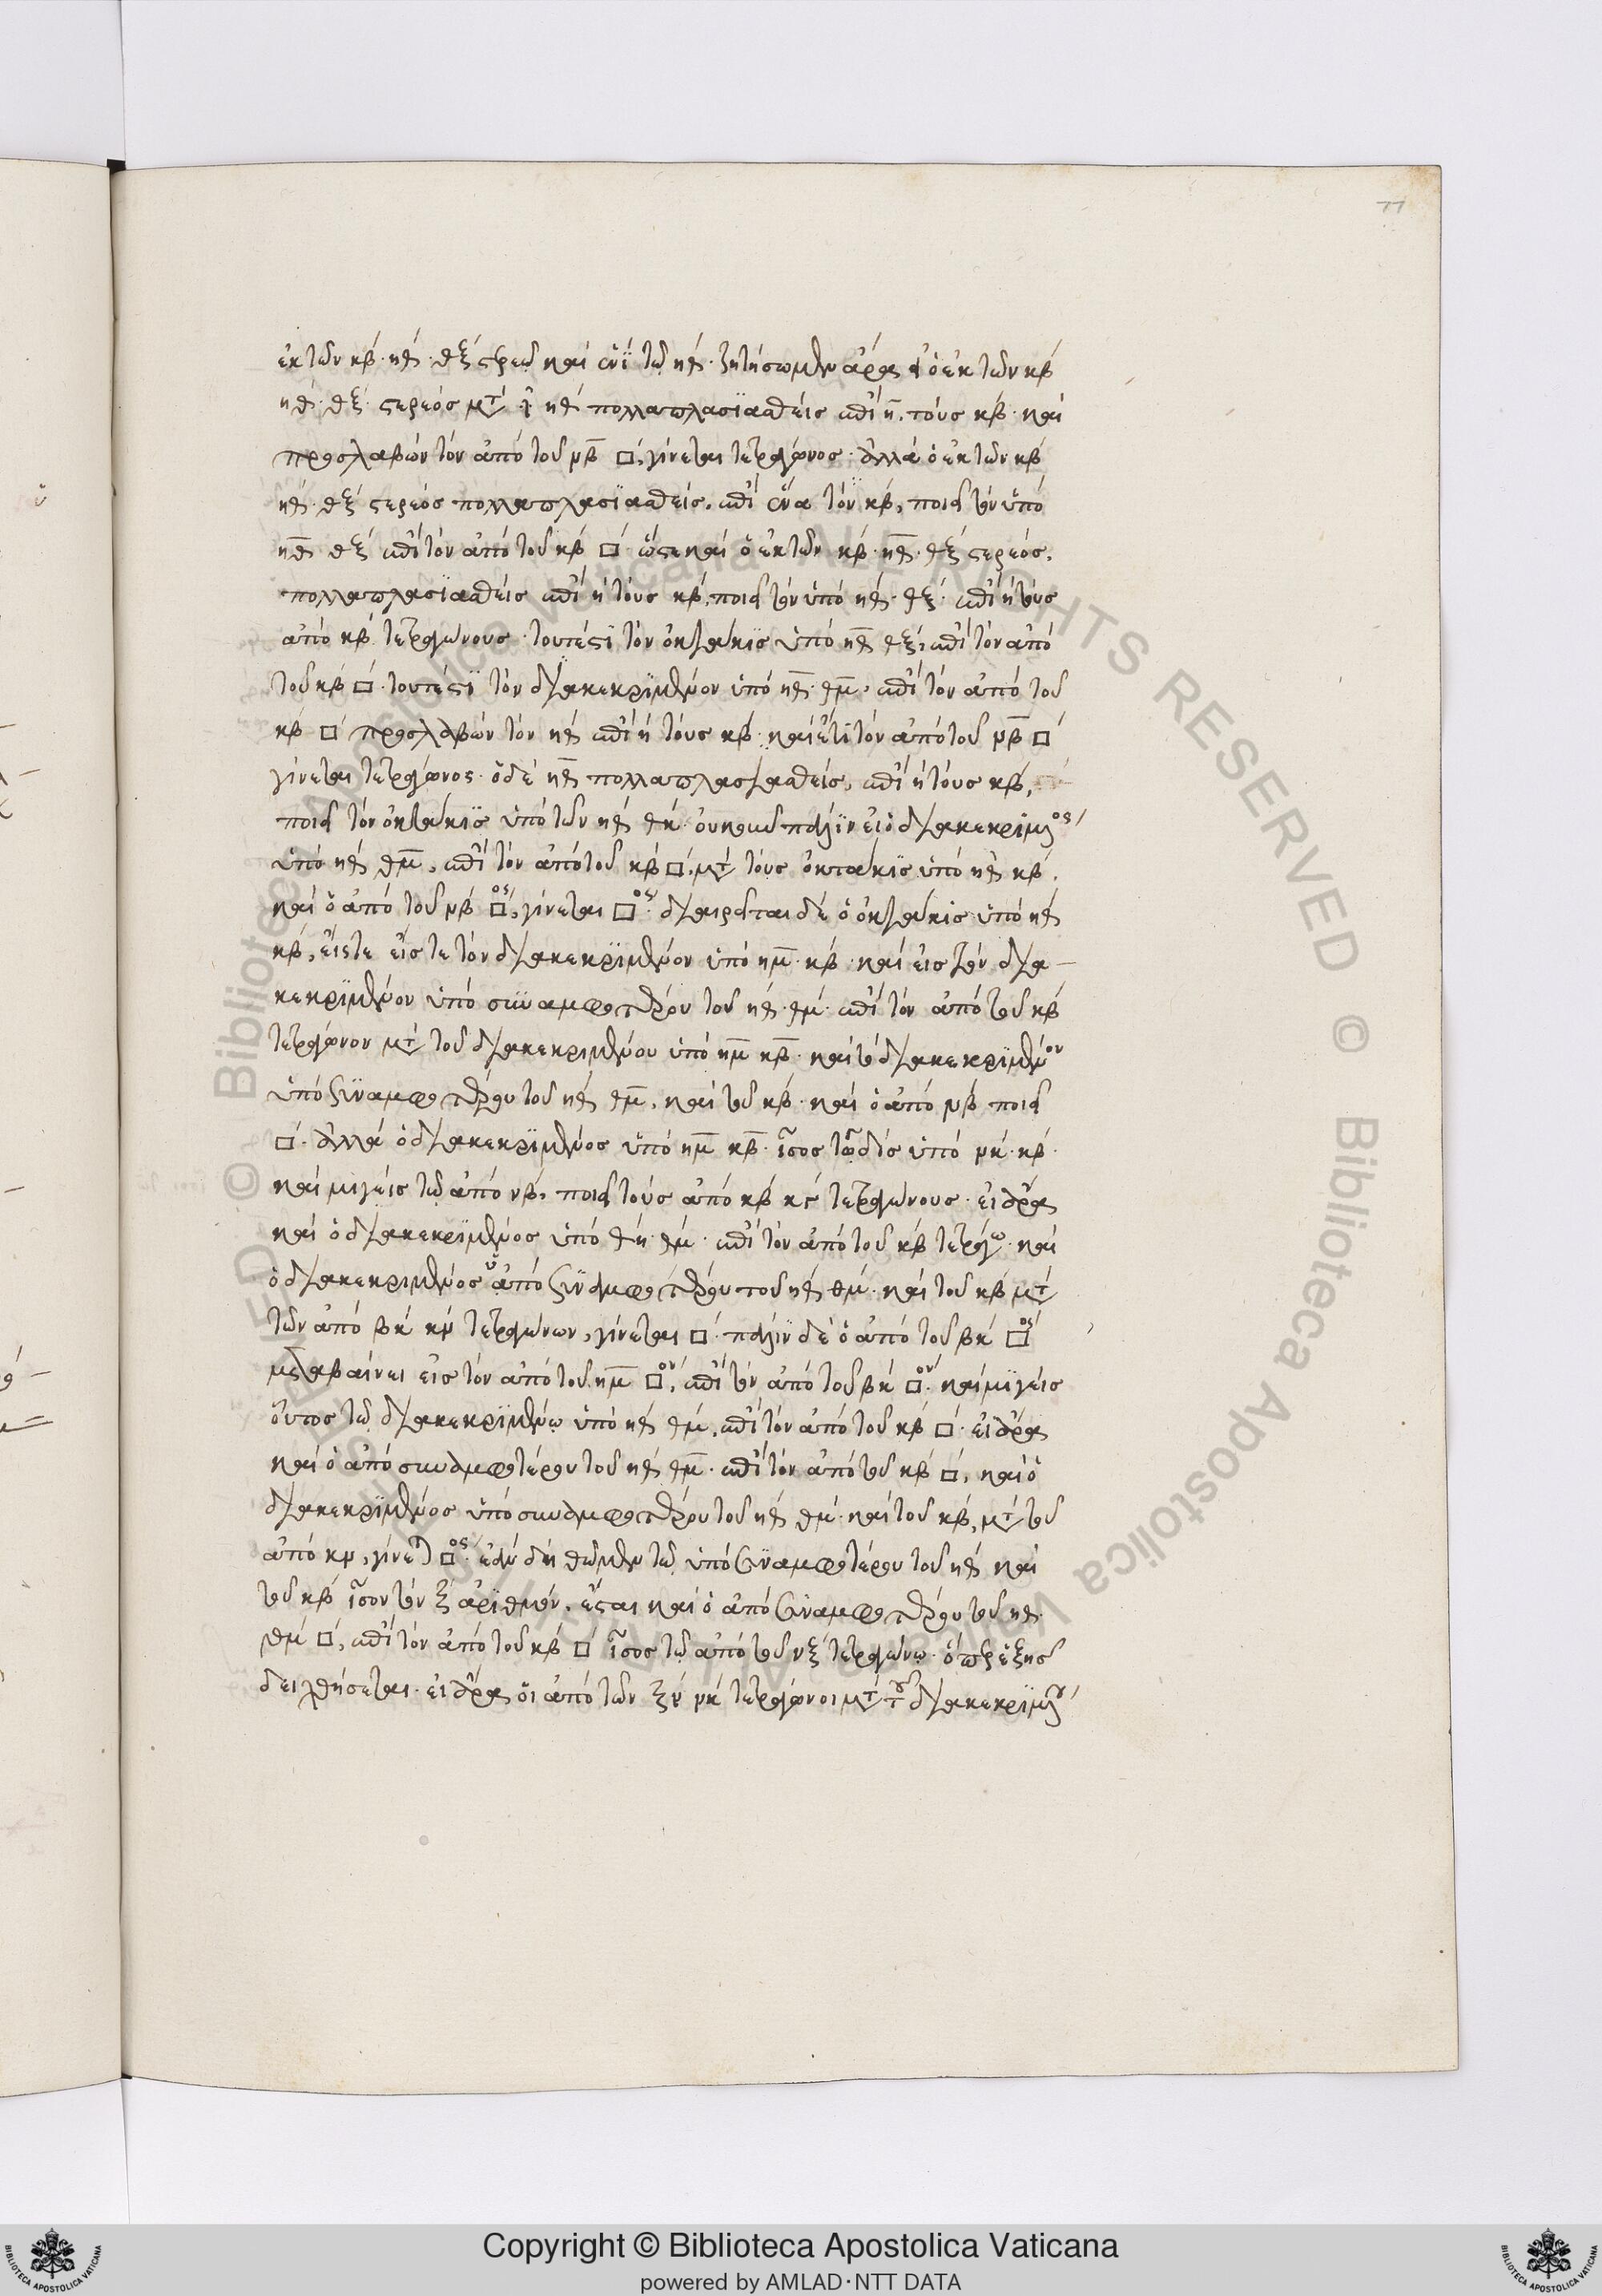 77
ἐκ τῶν κβ · ηθ · θξ στερεῷ καὶ ἑνὶ τῷ ηθ · ζητήσωμεν ἄρα ὁ ἐκ τῶν κβ
ηθ · θξ · στερεός μτ ηθ πολλαπλασϊασθεὶς ἐπὶ η · τοὺς κβ · καὶ
προσλαβὼν τὸν ἀπὸ τοῦ μβ □, γίνεται τετράγωνος · ἀλλὰ ὁ ἐκ τῶν κβ
ηθ · θξ στερεός πολλαπλασϊασθείς, ἐπὶ ἕνα τὸν κβ, ποιεῖ τὸν ὑπὸ
ηθ θξ ἐπὶ τὸν ἀπὸ τοῦ κβ □ · ὥστε καὶ ὁ ἐκ τῶν κβ · ηθ · θξ στερεός,
πολλαπλασϊασθεὶς ἐπὶ η τοὺς κβ, ποιεῖ τὸν ὑπὸ ηθ · θξ · ἐπὶ η τοὺς
ἀπὸ κβ τετραγώνους · τουτέστι τὸν ὀκτάκις ὑπὸ ηθ θξ, ἐπὶ τὸν ἀπὸ
τοῦ κβ □ · τουτέστϊ τὸν διακεκρϊμένον ὑπὸ ηθ · θμ · ἐπὶ τὸν ἀπὸ τοῦ
κβ □ προσλαβὼν τὸν ηθ ἐπὶ η τοὺς κβ · καὶ ἔτι τὸν ἀπὸ τοῦ μβ □
γίνεται τετράγωνος · ὁ δὲ ηθ πολλαπλασιασθείς, ἐπὶ η τοὺς κβ,
ποιεῖ τὸν ὀκτάκις ὑπὸ τῶν ηθ θκ · οὐκοῦν πάλϊν εἰ ὁ διακεκρϊμένος
ὑπὸ ηθ θμ, ἐπὶ τὸν ἀπὸ τοῦ κβ □, μτ τοὺς ὀκτάκϊς ὑπὸ ηθ κβ ·
καὶ ὁ ἀπὸ τοῦ μβ □ος, γίνεται □ος · διαιρεῖται δὲ ὁ ὀκτάκις ὑπὸ ηθ
κβ, εἴς τε εἴς τε τὸν διακεκρϊμένον ὑπὸ ημ · κβ · καὶ εἰς τὸν δια-
κεκρϊμένον ὑπὸ συναμφοτέρου τοῦ ηθ · θμ · ἐπὶ τὸν ἀπὸ τοῦ κβ
τετράγωνον μτ τοῦ διακεκριμένου ὑπὸ ημ κβ · καὶ τοῦ διακεκρϊμένου
ὑπὸ συναμφοτέρου τοῦ ηθ θμ, καὶ τοῦ κβ · καὶ ὁ ἀπὸ μβ ποιεῖ
□ · ἀλλὰ ὁ διακεκρϊμένος ὑπὸ ημ κβ · ἴσος τῷ δὶς ὑπὸ μκ · κβ ·
καὶ μιγεὶς τῷ ἀπὸ μβ, ποιεῖ τοὺς ἀπὸ κβ κϛ τετραγώνους · εἰ ἄρα
καὶ ὁ διακεκρϊμένος ὑπὸ θη · θμ · ἐπὶ τὸν ἀπὸ τοῦ κβ τετράγω · καὶ
ὁ διακεκριμένος ἀπὸ συναμφοτέρου τοῦ ηθ θμ · καὶ τοῦ κβ μτ
τῶν ἀπὸ βκ κμ τετραγώνων, γίνεται □ · πάλιν δὲ ὁ ἀπὸ τοῦ βκ □ος
μεταβαίνει εἰς τὸν ἀπὸ τοῦ ημ □ον, ἐπὶ τὸν ἀπὸ τοῦ βκ □ον · καὶ μϊγεὶς
οὗτος τῷ διακεκρϊμένῳ ὑπὸ ηθ θμ, ἐπὶ τὸν ἀπὸ τοῦ κβ □ · εἰ ἄρα
καὶ ὁ ἀπὸ συναμφοτέρου τοῦ ηθ θμ · ἐπὶ τὸν ἀπὸ τοῦ κβ □, καὶ ὁ
διακεκρϊμένος ὑπὸ συναμφοτέρου τοῦ ηθ θμ · καὶ τοῦ κβ, μτ τοῦ
ἀπὸ κμ, γίνεται □ος · ἐὰν δὴ θῶμεν τῷ ὑπὸ συναμφοτέρου τοῦ ηθ καὶ
τοῦ κβ ἴσον τὸν ξ ἀριθμόν, ἔσται καὶ ὁ ἀπὸ συναμφοτέρου τοῦ ηθ
θμ □, ἐπὶ τὸν ἀπὸ τοῦ κβ □ ἴσος τῷ ἀπὸ τοῦ νξ τετραγώνῳ · ὅπερ ἑξῆς
δειχθήσεται · εἰ ἄρα οἱ ἀπὸ τῶν ξν μκ τετράγωνοι μτ τοῦ διακεκρϊμένου
Copyright © Biblioteca Apostolica Vaticana
powered by AMLAD·NTT DATA